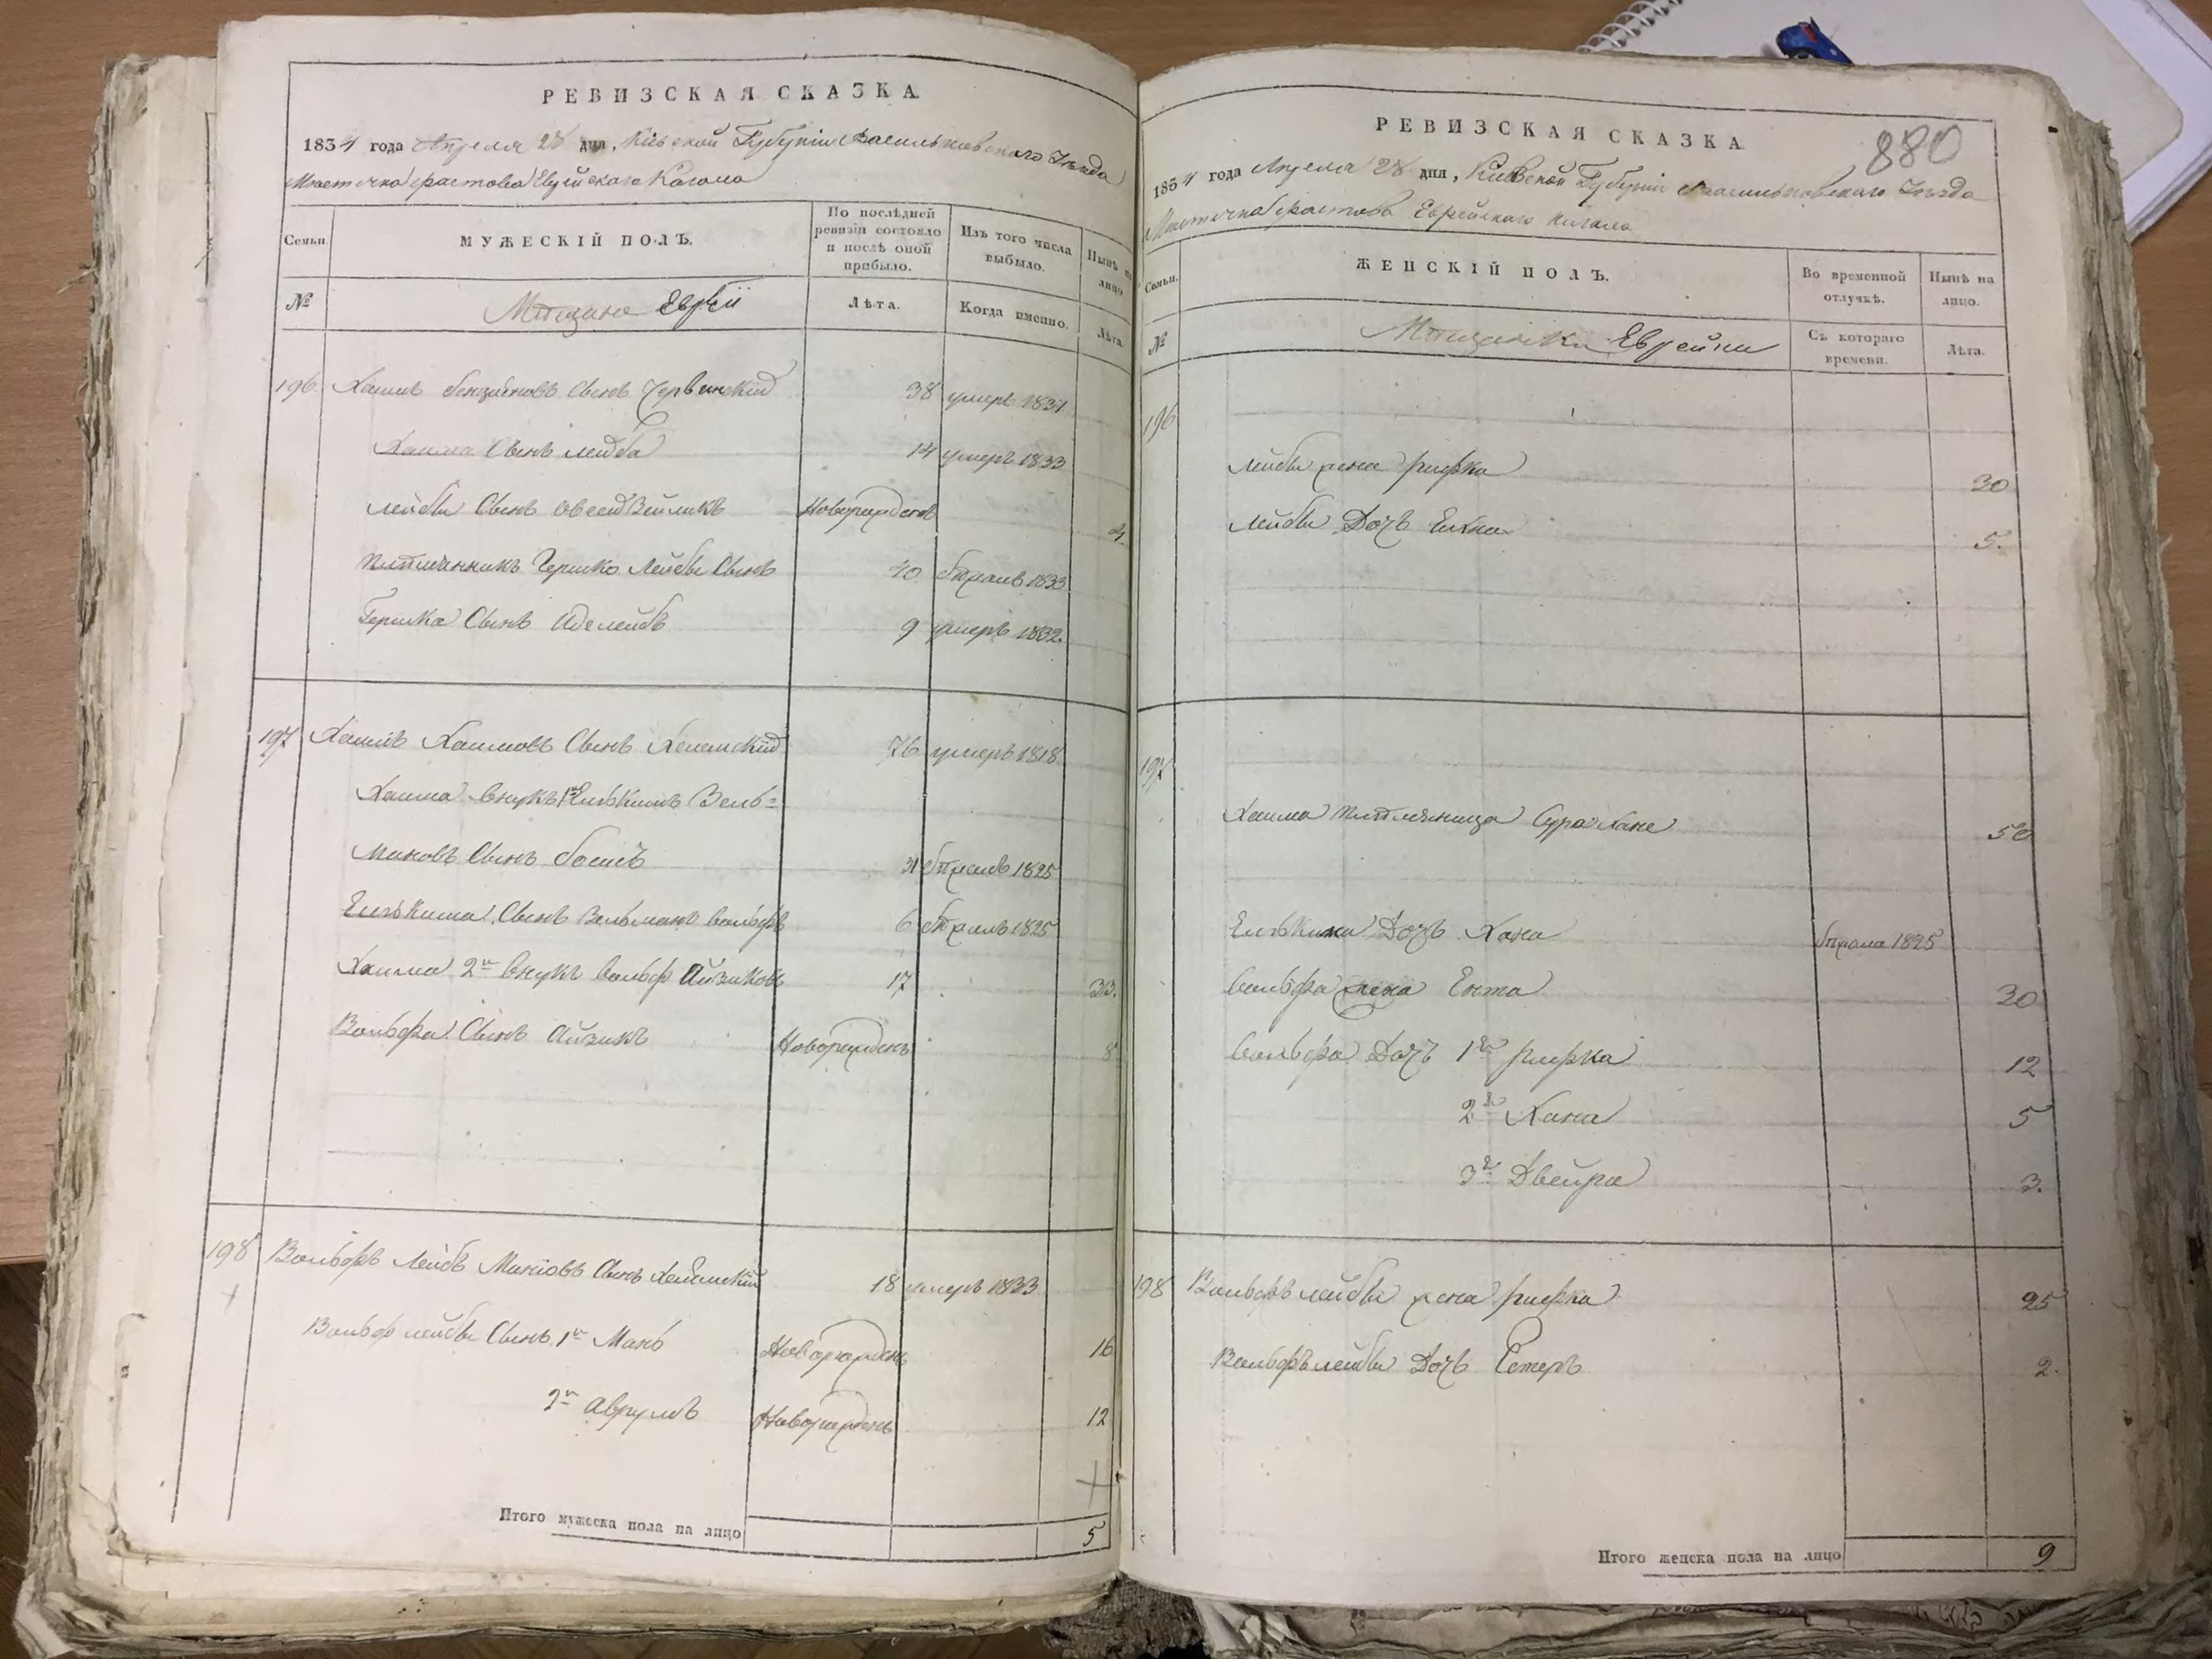 РЕВИЗСКАЯ СКАЗКА
1834 года Апреля 28 дня, Кіевской Губерніи Васильковскаго Уѣзда
Мѣстечка Фастова Еврейскаго Кагала
Семьи.
МУЖЕСКІЙ ПОЛЪ.
По послѣдней ревизіи состояло и послѣ оной прибыло.
Изъ того числа выбыло.
Нынѣ на лицо
№
Мѣщане Евреи
Лѣта.
Когда именно.
Лѣта.
196. Хаимъ Сынъ Червинскій 38 умеръ 1831
Хаима Сынъ Лейба 14 умеръ 1833
Лейбы Сынъ Овсей Зейликъ Новорожденъ 4.
Племянникъ Гершко Лейбы Сынъ 40 1833
Гершка Сынъ Иделейбъ 9 умеръ 1832.
197 Хаимъ Хаимовъ Сынъ 76 умеръ 1818
Хаима внукъ 1й Ельkимъ Зель-
мановъ Сынъ 31 1825
Сынъ Зельманъ Вольфъ 6 1825
Хаима 2й внукъ Вольф Айзиковъ 17 33.
Вольфа Сынъ Айзикъ Новорожденъ 8
198 Вольфъ Лейбъ Маніовъ Сынъ 18 умеръ 1833
Вольф Лейбы Сынъ 1й Мань Новорожденъ 16
2й Аврумъ Новорожденъ 12
Итого мужеска пола на лицо 5
РЕВИЗСКАЯ СКАЗКА
880
1834 года Апреля 28 дня, Киевской Губерніи Васильковскаго Уѣзда
Мѣстечка Фастова Еврейскаго Кагала
Семьи.
ЖЕНСКІЙ ПОЛЪ.
Во временной отлучкѣ.
Нынѣ на лицо.
№
Мѣщанки Еврейки
Съ котораго времени.
Лѣта.
196
Лейбы жена Рифка 30
Лейбы Дочь 5.
197
Хаима племяница Сура Хане 50
Дочь Хана 1825
Вольфа жена Ента 30
Вольфа Дочь 1я Рифка 12
2я Хана 5
3я Двейра 3.
198 Вольфъ Лейбы жена Рифка 25
Вольфъ Лейбы Дочь Естеръ 2.
Итого женска пола на лицо 9